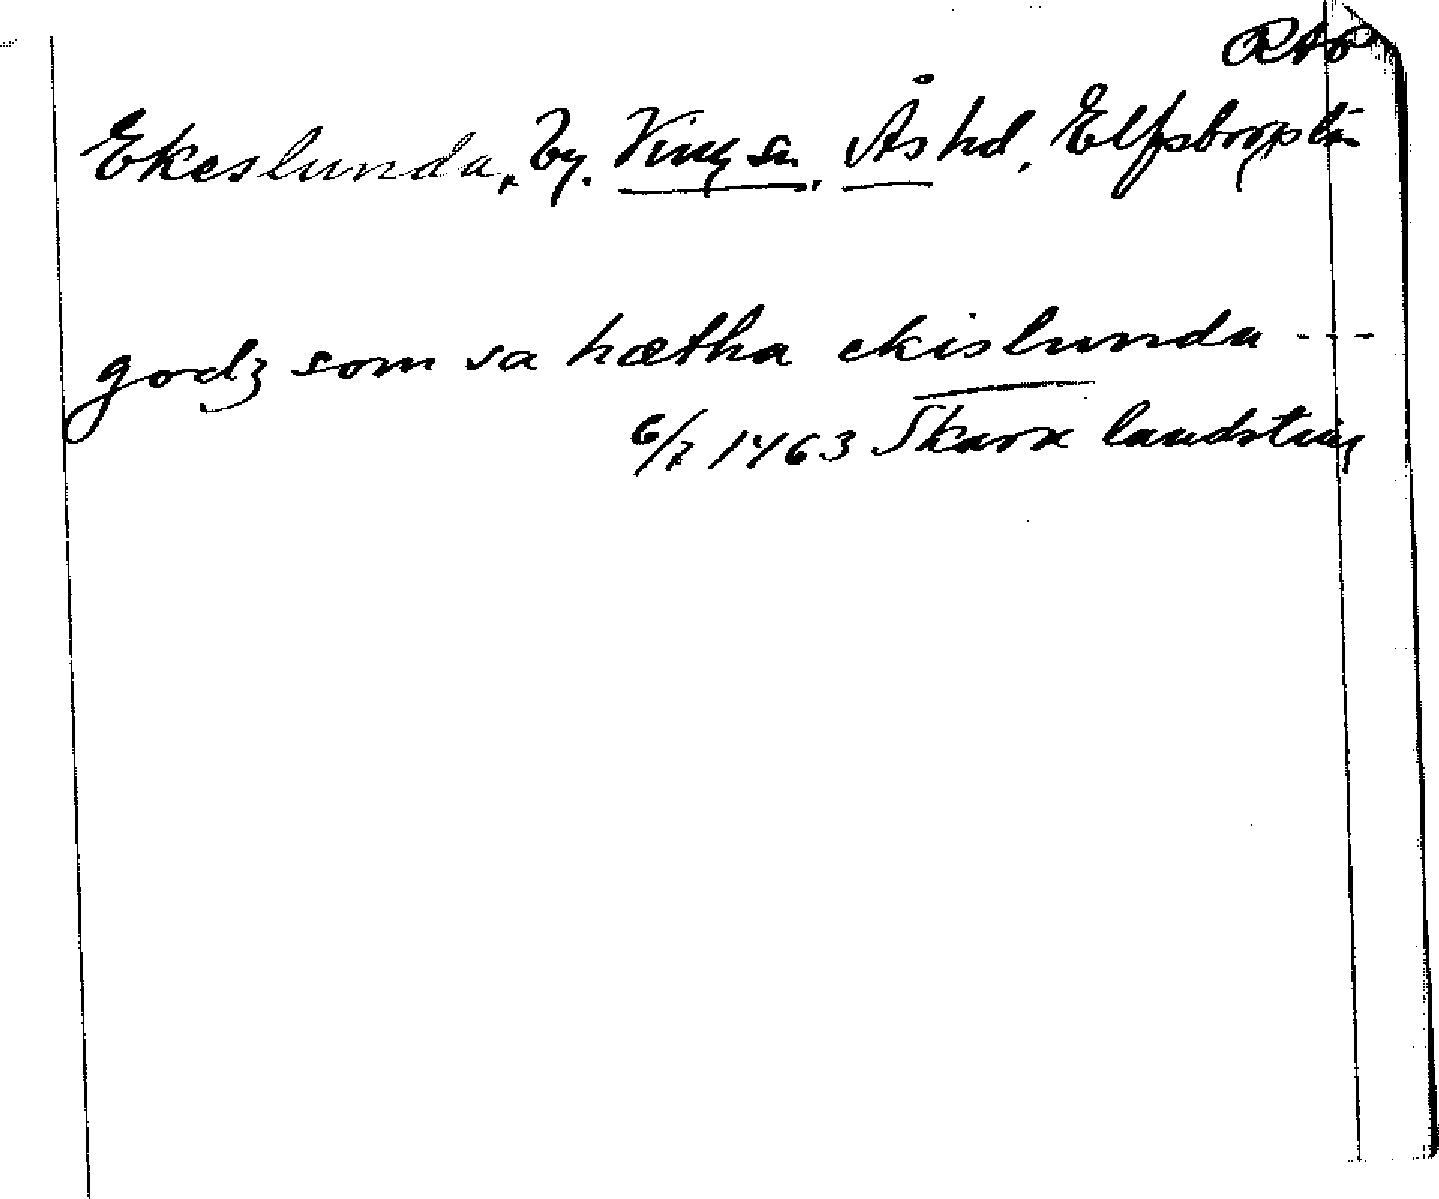 RAP
Ekeslunda, by. Ving sn, Ås hd, Elfsborgs län
godz som sa hætha ekislunda ---
6/7 1463 Skara landsting